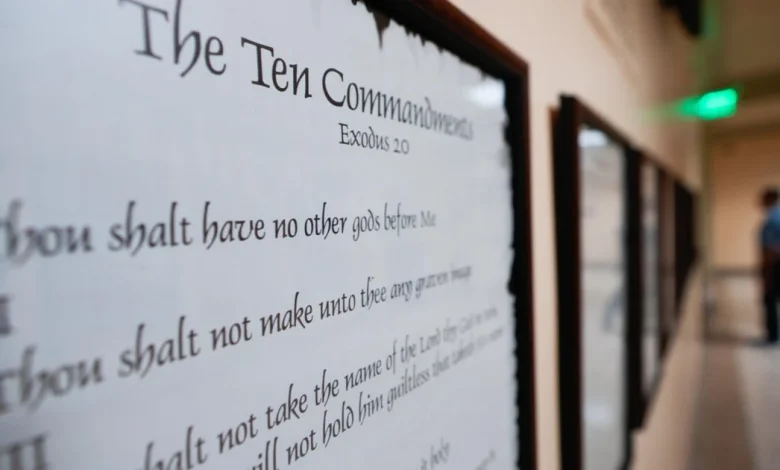 The Ten Commandments
Exodus 20
Thou shalt have no other gods before Me
Thou shalt not make unto thee any graven image
shalt not take the name of the Lord thy God in
will not hold him guiltless that taketh
it holy